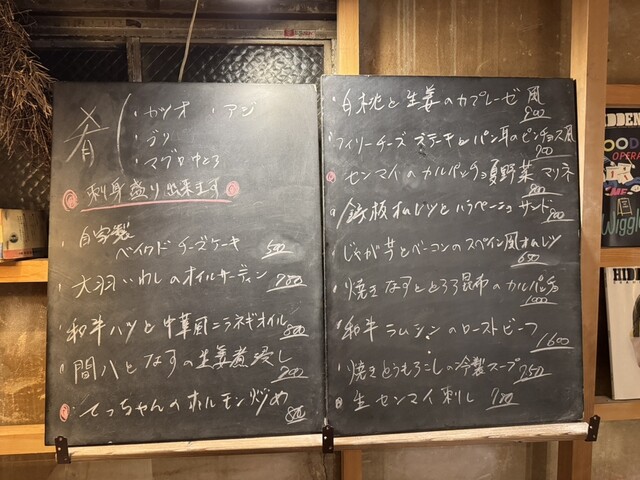 肴
・カツオ ・アジ
・ブリ
・マグロ中とろ
刺身盛り出来ます
・自家製
ベイクドチーズケーキ 500
・大羽いわしのオイルサーディン 700
・和牛ハツと中華風ニラネギオイル 800
・間八となすの生姜煮浸し 900
てっちゃんのホルモン炒め 800
・白桃と生姜のカプレーゼ風 800
・フィリーチーズステーキとパン耳のピンチョス風 900
センマイのカルパッチョ夏野菜マリネ 800
・鉄板オムレツとハラペーニョサンド 800
・じゃが芋とベーコンのスペイン風オムレツ 650
・焼きなすととろろ昆布のカルパッチョ 1000
・和牛ラムシンのローストビーフ 1600
・焼きとうもろこしの冷製スープ 750
生センマイ刺し 700
HIDDEN
OPERA
Wiggle
HIDD